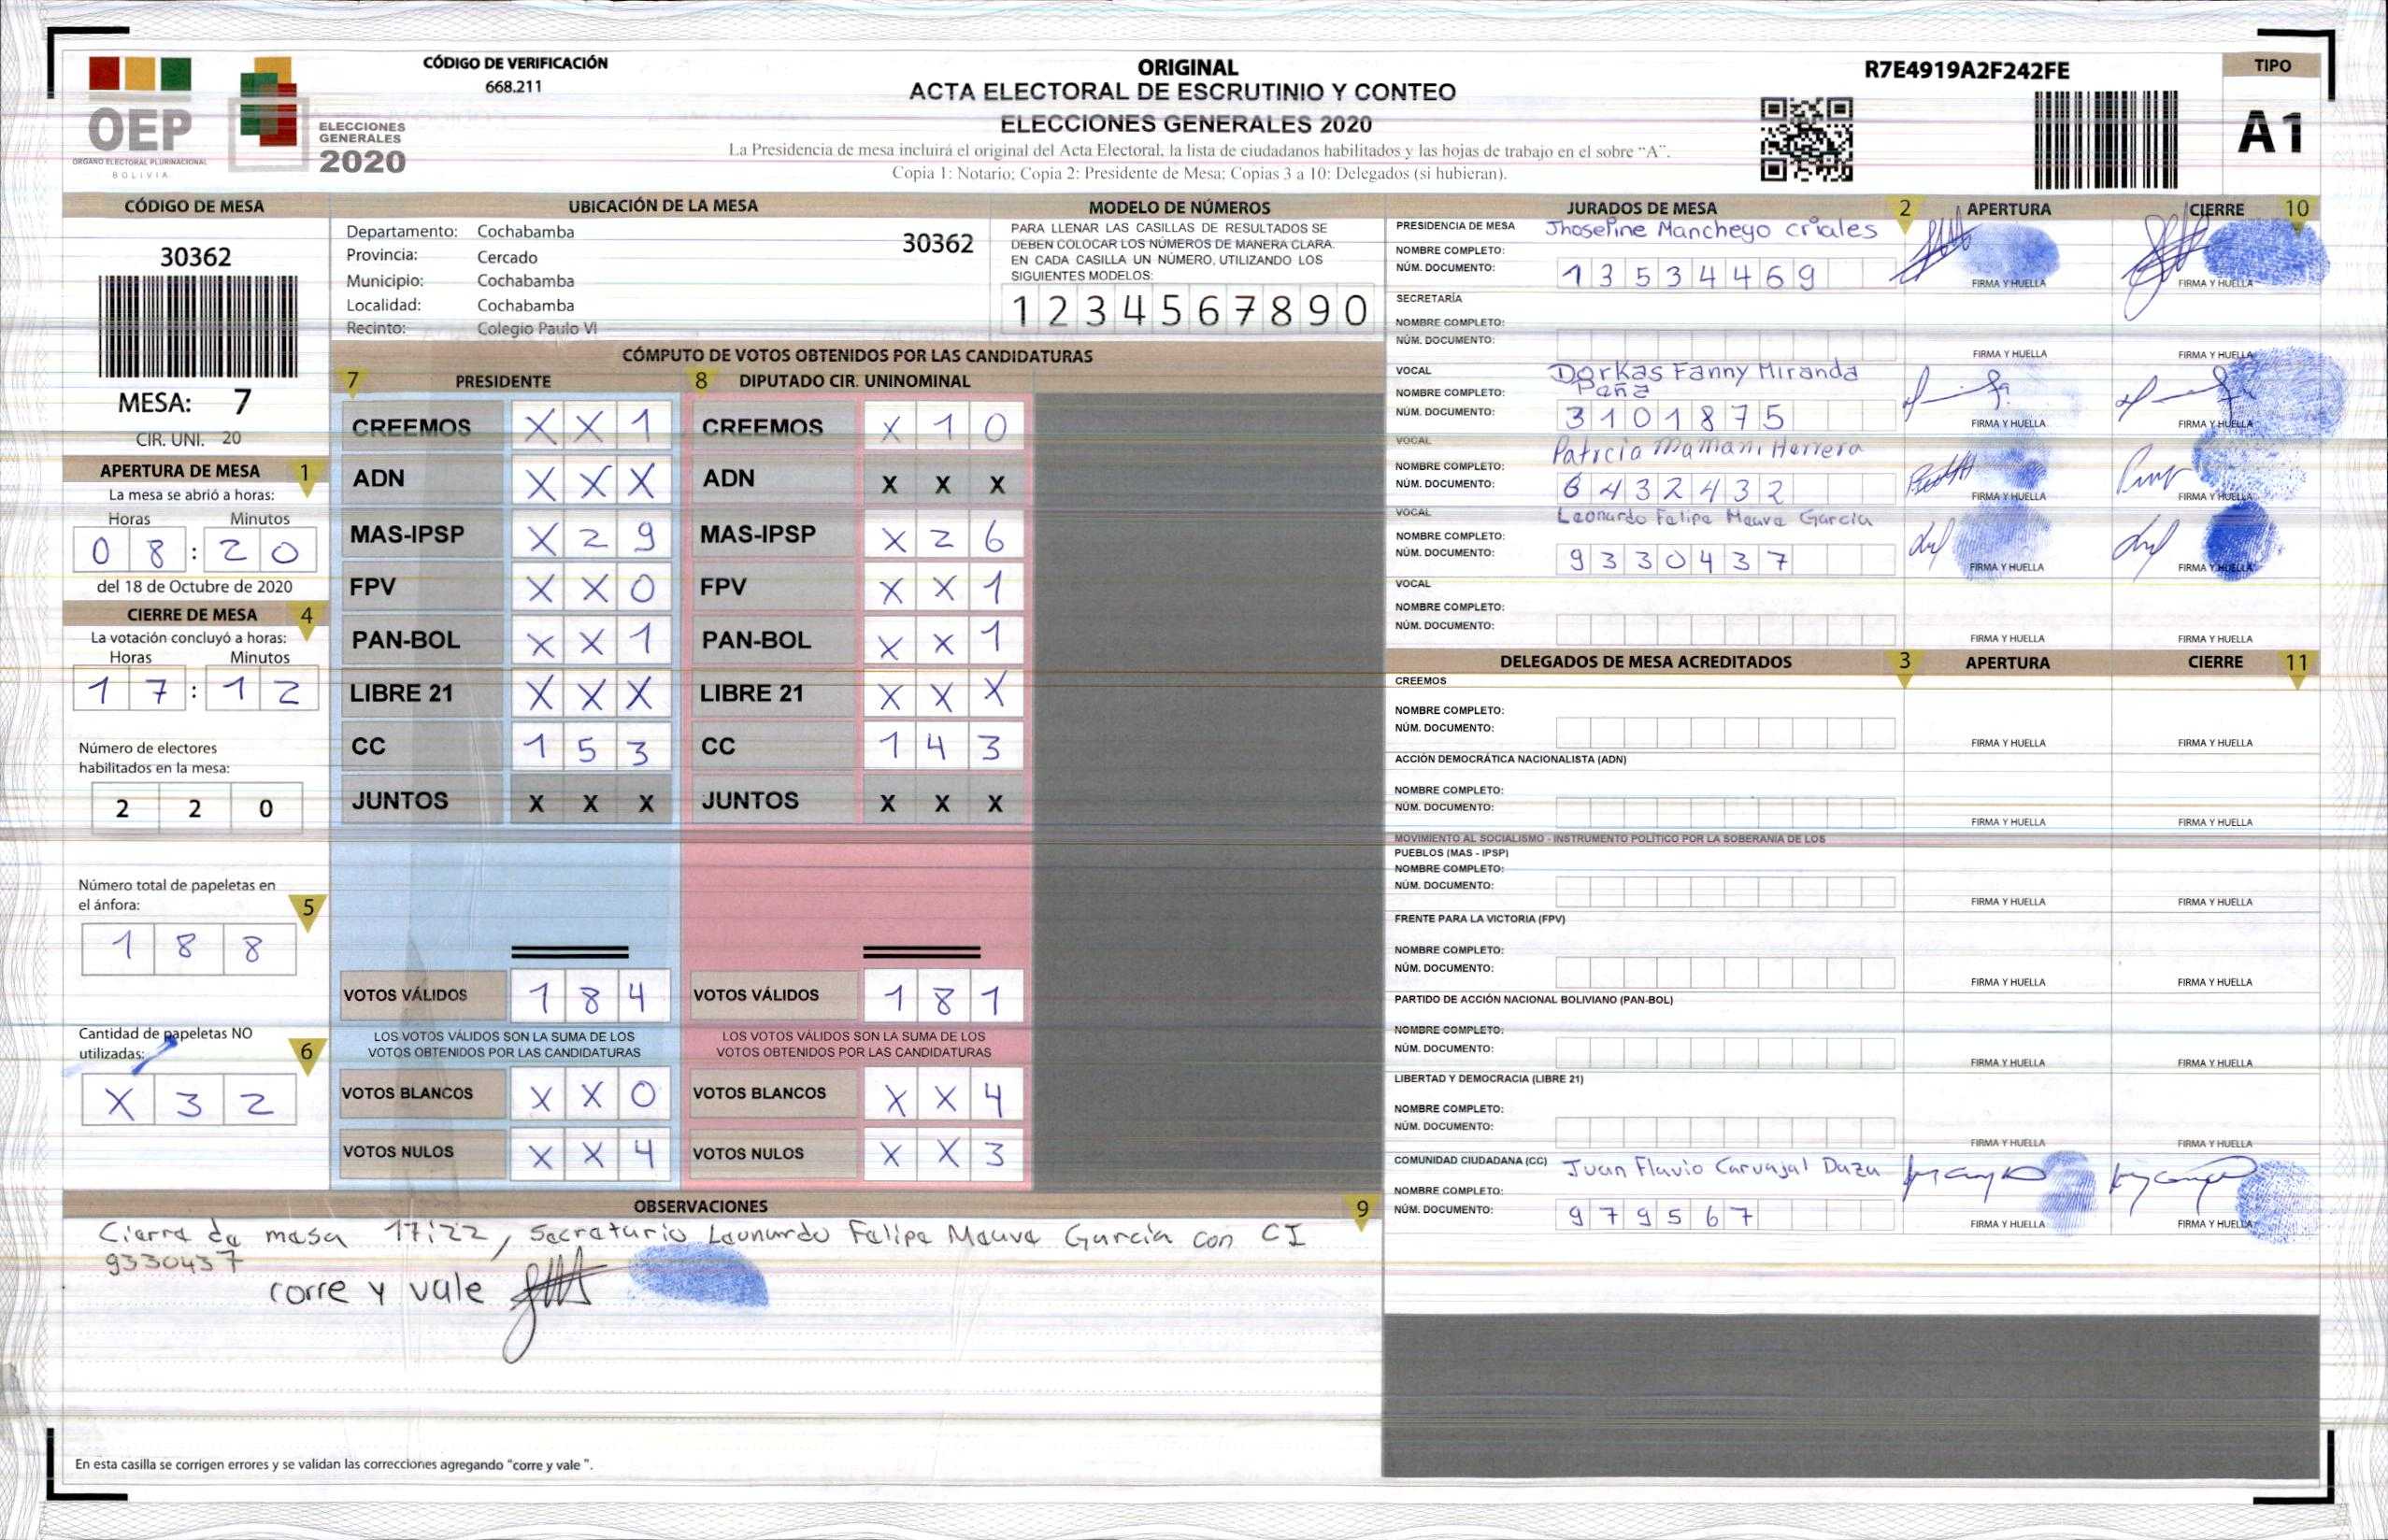 CÓDIGO DE VERIFICACIÓN
668.211
OEP
ORGANO ELECTORAL PLURINACIONAL
BOLIVIA
ELECCIONES
GENERALES
2020
ORIGINAL
ACTA ELECTORAL DE ESCRUTINIO Y CONTEO
ELECCIONES GENERALES 2020
La Presidencia de mesa incluirá el original del Acta Electoral, la lista de ciudadanos habilitados y las hojas de trabajo en el sobre "A".
Copia 1: Notario; Copia 2: Presidente de Mesa; Copias 3 a 10: Delegados (si hubieran).
R7E4919A2F242FE
TIPO
A1
CÓDIGO DE MESA
30362
MESA: 7
CIR. UNI. 20
APERTURA DE MESA 1
La mesa se abrió a horas:
Horas Minutos
0 8 : 2 0
del 18 de Octubre de 2020
CIERRE DE MESA 4
La votación concluyó a horas:
Horas Minutos
1 7 : 1 2
Número de electores
habilitados en la mesa:
2 2 0
Número total de papeletas en
el ánfora: 5
1 8 8
Cantidad de papeletas NO
utilizadas: 6
X 3 2
UBICACIÓN DE LA MESA
Departamento: Cochabamba
30362
Provincia: Cercado
Municipio: Cochabamba
Localidad: Cochabamba
Recinto: Colegio Paulo VI
MODELO DE NÚMEROS
PARA LLENAR LAS CASILLAS DE RESULTADOS SE
DEBEN COLOCAR LOS NÚMEROS DE MANERA CLARA.
EN CADA CASILLA UN NÚMERO, UTILIZANDO LOS
SIGUIENTES MODELOS:
1 2 3 4 5 6 7 8 9 0
CÓMPUTO DE VOTOS OBTENIDOS POR LAS CANDIDATURAS
7 PRESIDENTE 8 DIPUTADO CIR. UNINOMINAL
CREEMOS X X 1 CREEMOS X 1 0
ADN X X X ADN X X X
MAS-IPSP X 2 9 MAS-IPSP X 2 6
FPV X X 0 FPV X X 1
PAN-BOL X X 1 PAN-BOL X X 1
LIBRE 21 X X X LIBRE 21 X X X
CC 1 5 3 CC 1 4 3
JUNTOS X X X JUNTOS X X X
VOTOS VÁLIDOS 1 8 4 VOTOS VÁLIDOS 1 8 1
LOS VOTOS VÁLIDOS SON LA SUMA DE LOS LOS VOTOS VÁLIDOS SON LA SUMA DE LOS
VOTOS OBTENIDOS POR LAS CANDIDATURAS VOTOS OBTENIDOS POR LAS CANDIDATURAS
VOTOS BLANCOS X X 0 VOTOS BLANCOS X X 4
VOTOS NULOS X X 4 VOTOS NULOS X X 3
JURADOS DE MESA 2 APERTURA CIERRE 10
PRESIDENCIA DE MESA Jhoseline Manchego criales
NOMBRE COMPLETO:
NÚM. DOCUMENTO: 1 3 5 3 4 4 6 9 FIRMA Y HUELLA FIRMA Y HUELLA
SECRETARÍA
NOMBRE COMPLETO:
NÚM. DOCUMENTO: FIRMA Y HUELLA FIRMA Y HUELLA
VOCAL Dorkas Fanny Miranda
NOMBRE COMPLETO: Peña
NÚM. DOCUMENTO: 3 1 0 1 8 7 5 FIRMA Y HUELLA FIRMA Y HUELLA
VOCAL Patrcia Mamani Herrera
NOMBRE COMPLETO:
NÚM. DOCUMENTO: 6 4 3 2 4 3 2 FIRMA Y HUELLA FIRMA Y HUELLA
VOCAL Leonardo Felipe Mauve Garcia
NOMBRE COMPLETO:
NÚM. DOCUMENTO: 9 3 3 0 4 3 7 FIRMA Y HUELLA FIRMA Y HUELLA
VOCAL
NOMBRE COMPLETO:
NÚM. DOCUMENTO: FIRMA Y HUELLA FIRMA Y HUELLA
DELEGADOS DE MESA ACREDITADOS 3 APERTURA CIERRE 11
CREEMOS
NOMBRE COMPLETO:
NÚM. DOCUMENTO: FIRMA Y HUELLA FIRMA Y HUELLA
ACCIÓN DEMOCRÁTICA NACIONALISTA (ADN)
NOMBRE COMPLETO:
NÚM. DOCUMENTO: FIRMA Y HUELLA FIRMA Y HUELLA
MOVIMIENTO AL SOCIALISMO - INSTRUMENTO POLÍTICO POR LA SOBERANIA DE LOS
PUEBLOS (MAS - IPSP)
NOMBRE COMPLETO:
NÚM. DOCUMENTO: FIRMA Y HUELLA FIRMA Y HUELLA
FRENTE PARA LA VICTORIA (FPV)
NOMBRE COMPLETO:
NÚM. DOCUMENTO: FIRMA Y HUELLA FIRMA Y HUELLA
PARTIDO DE ACCIÓN NACIONAL BOLIVIANO (PAN-BOL)
NOMBRE COMPLETO:
NÚM. DOCUMENTO: FIRMA Y HUELLA FIRMA Y HUELLA
LIBERTAD Y DEMOCRACIA (LIBRE 21)
NOMBRE COMPLETO:
NÚM. DOCUMENTO: FIRMA Y HUELLA FIRMA Y HUELLA
COMUNIDAD CIUDADANA (CC) Juan Flavio Carvajal Daza
NOMBRE COMPLETO:
NÚM. DOCUMENTO: 9 7 9 5 6 7 FIRMA Y HUELLA FIRMA Y HUELLA
OBSERVACIONES 9
Cierre de mesa 17:22, Secretario Leonardo Felipe Mauve García con CI
9330437
corre y vale
En esta casilla se corrigen errores y se validan las correcciones agregando "corre y vale ".